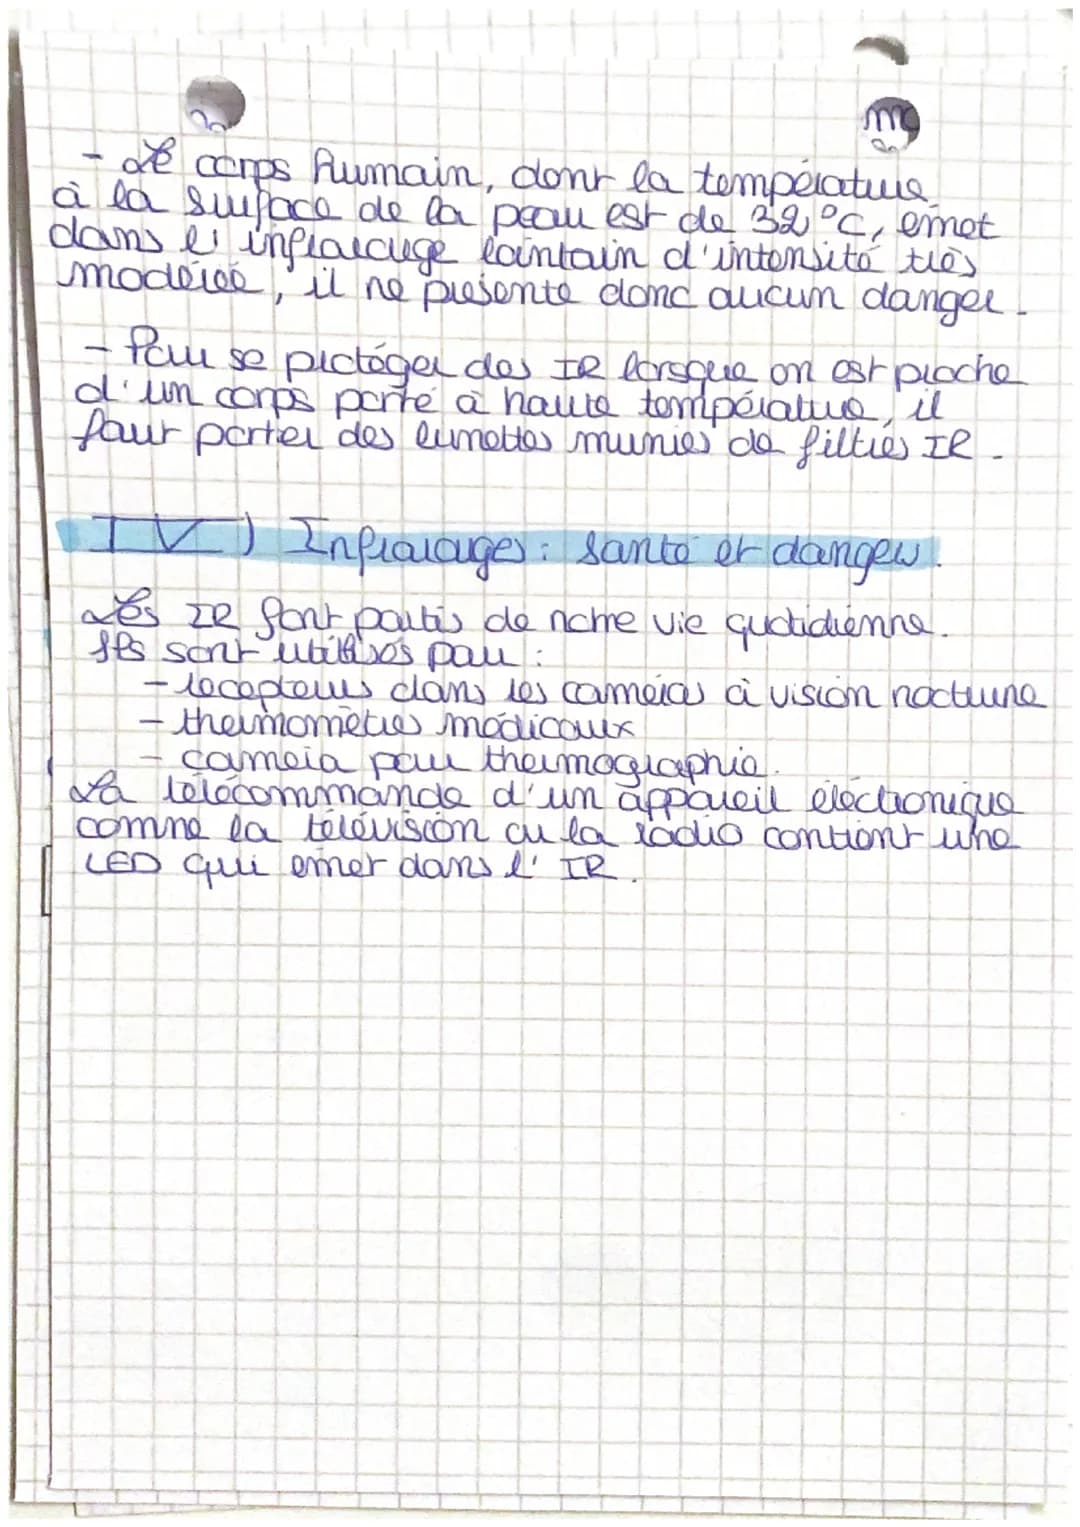 - Le corps humain, dont la température
à la surface de la peau est de 32°C, émet
dans l'infrarouge lointain d'intensité très
modérée, il ne présente donc aucun danger.
- Pour se protéger des IR lorsque on est proche
d'un corps porté à haute température, il
faut porter des lunettes munies de filtres IR.
IV) Infrarouges : santé et danger.
Les IR font partis de notre vie quotidienne.
Ils sont utilisés pour :
- recepteurs dans les caméras à vision nocturne
- thermomètres médicaux
- camera pour thermographie.
La télécommande d'un appareil électronique
comme la télévision ou la radio contient une
LED qui émet dans l'IR.